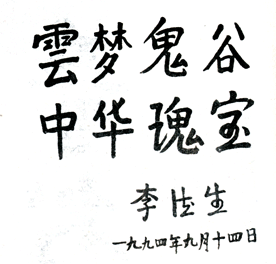 雲梦鬼谷
中华瑰宝
李德生
一九九四年九月十四日